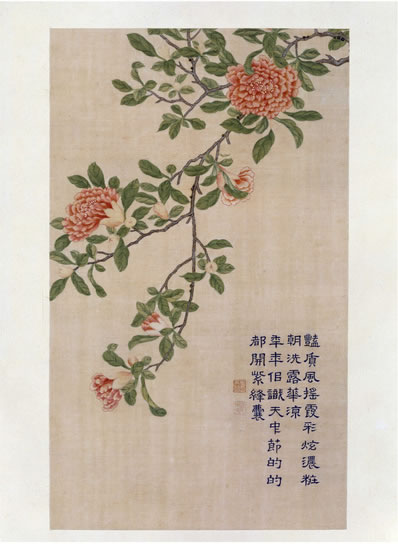 豔質風搖霞彩炫濃粧
朝洗露華涼
年年佀識天中節的的
都開紫絳囊